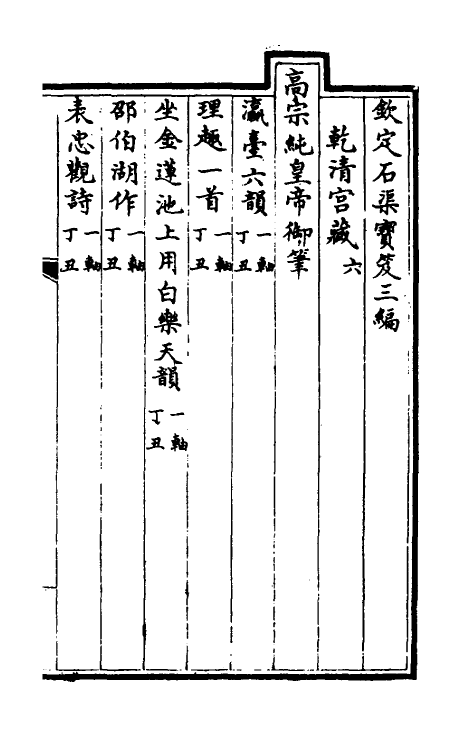 欽定石渠寶笈三編
乾清宮藏六
高宗純皇帝御筆
瀛臺六韻一軸丁丑
理趣一首一軸丁丑
坐金蓮池上用白樂天韻一軸丁丑
邵伯湖作一軸丁丑
表忠觀詩一軸丁丑